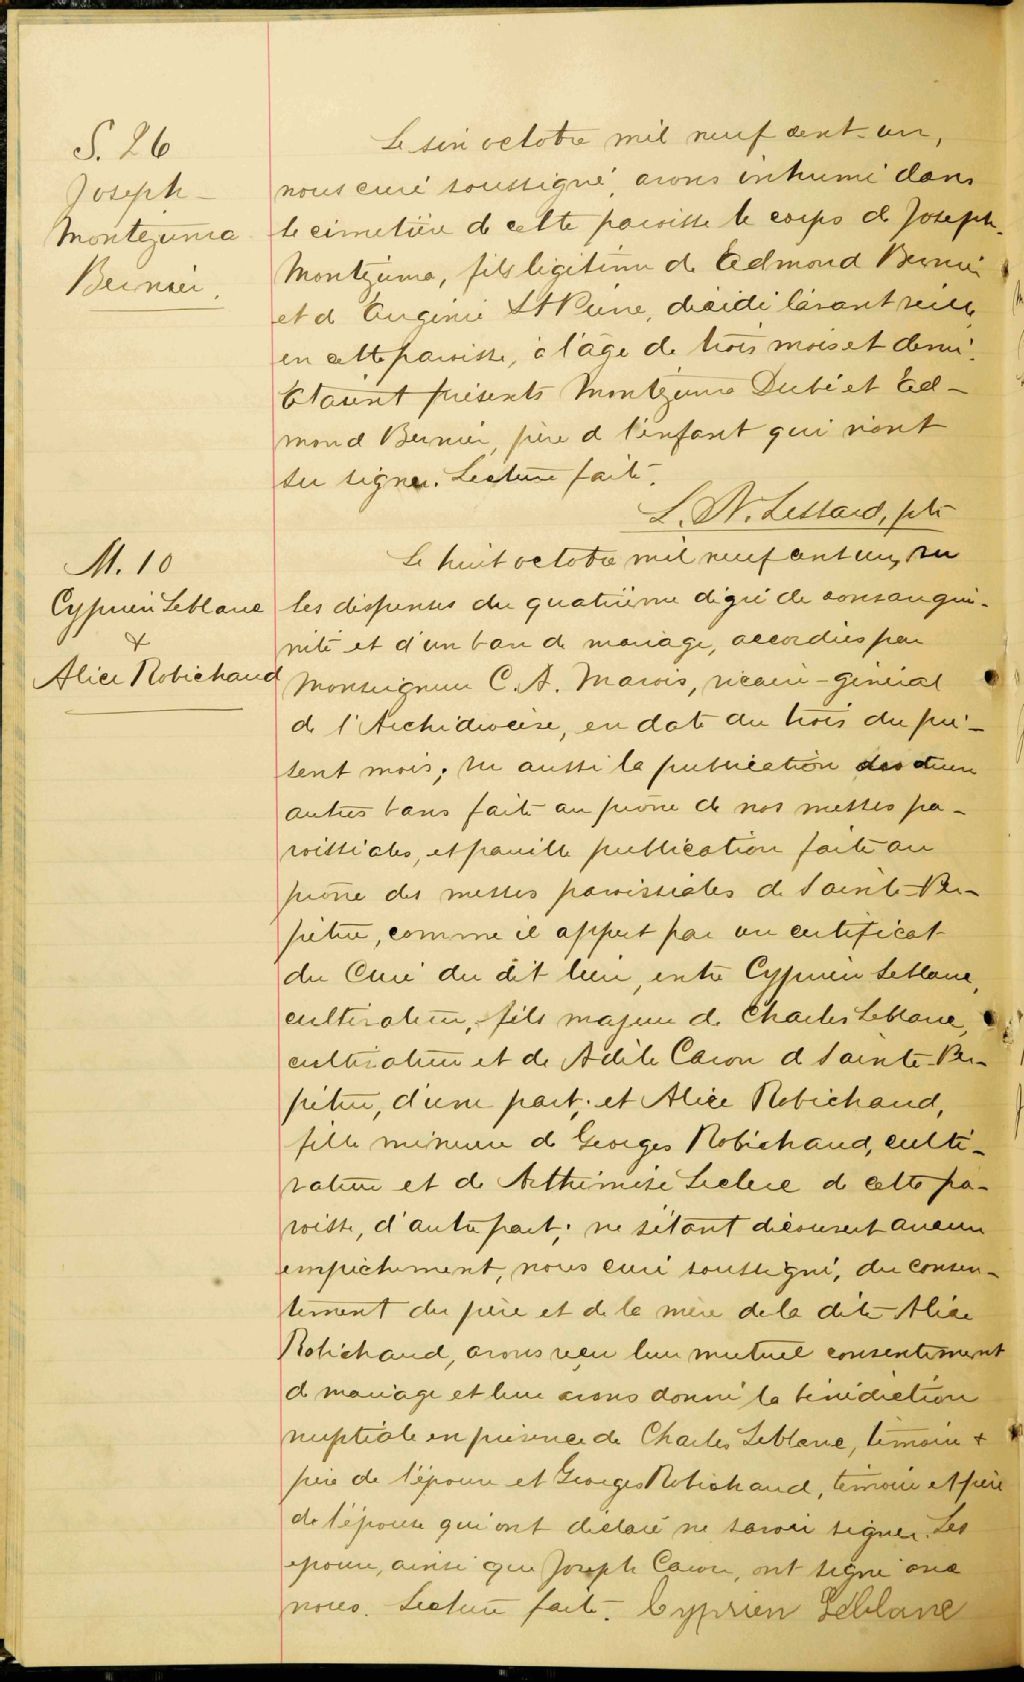 S. 26
Joseph-
Montézuma
Bernier.
Le six octobre mil neuf cent-un,
nous curé soussigné, avons inhumé dans
le cimetière de cette paroisse le corps de Joseph-
Montézuma, fils légitime de Edmond Bernier
et d'Eugénie St Pierre, décédé l'avant veille,
en cette paroisse, à l'âge de trois mois et demi.
Etaient présents Montézuma Dubé et Ed-
mond Bernier, père de l'enfant qui n'ont
su signer. Lecture faite.
L. N. Lessard, ptre
M. 10
Cyprien Leblanc
&
Alice Robichaud
Le huit octobre mil neuf cent un, vu
les dispenses du quatrième degré de consangui-
nité et d'un ban de mariage, accordées par
Monseigneur C. A. Marois, vicaire-général
de l'Archidiocèse, en date du trois du pré-
sent mois; vu aussi la publication des deux
autres bans faite au prône de nos messes pa-
roissiales, et pareille publication faite au
prône des messes paroissiales de Sainte-Per-
pétue, comme il appert par un certificat
du Curé du dit lieu, entre Cyprien Leblanc,
cultivateur, fils majeur de Charles Leblanc,
cultivateur et de Adèle Caron de Sainte-Per-
pétue, d'une part; et Alice Robichaud,
fille mineure de Georges Robichaud, culti-
vateur et de Arthémise Leclerc de cette pa-
roisse, d'autre part; ne s'étant découvert aucun
empêchement, nous curé soussigné, du consen-
tement du père et de la mère de la dite Alice
Robichaud, avons reçu leur mutuel consentement
de mariage et leur avons donné la bénédiction
nuptiale en présence de Charles Leblanc, témoin &
père de l'époux et Georges Robichaud, témoin et père
de l'épouse qui ont déclaré ne savoir signer. Les
époux, ainsi que Joseph Caron, ont signé avec
nous. Lecture faite. Cyprien Leblanc